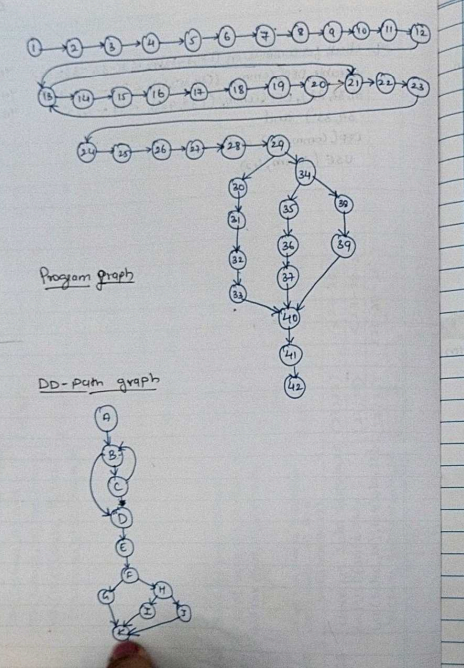 1 2 3 4 5 6 7 8 9 10 11 12
13 14 15 16 17 18 19 20 21 22 23
24 25 26 27 28 29
30 34
31 35 38
32 36 39
33 37
40
41
42
Program graph
DD-Path graph
A
B
C
D
E
F
G H
I J
K